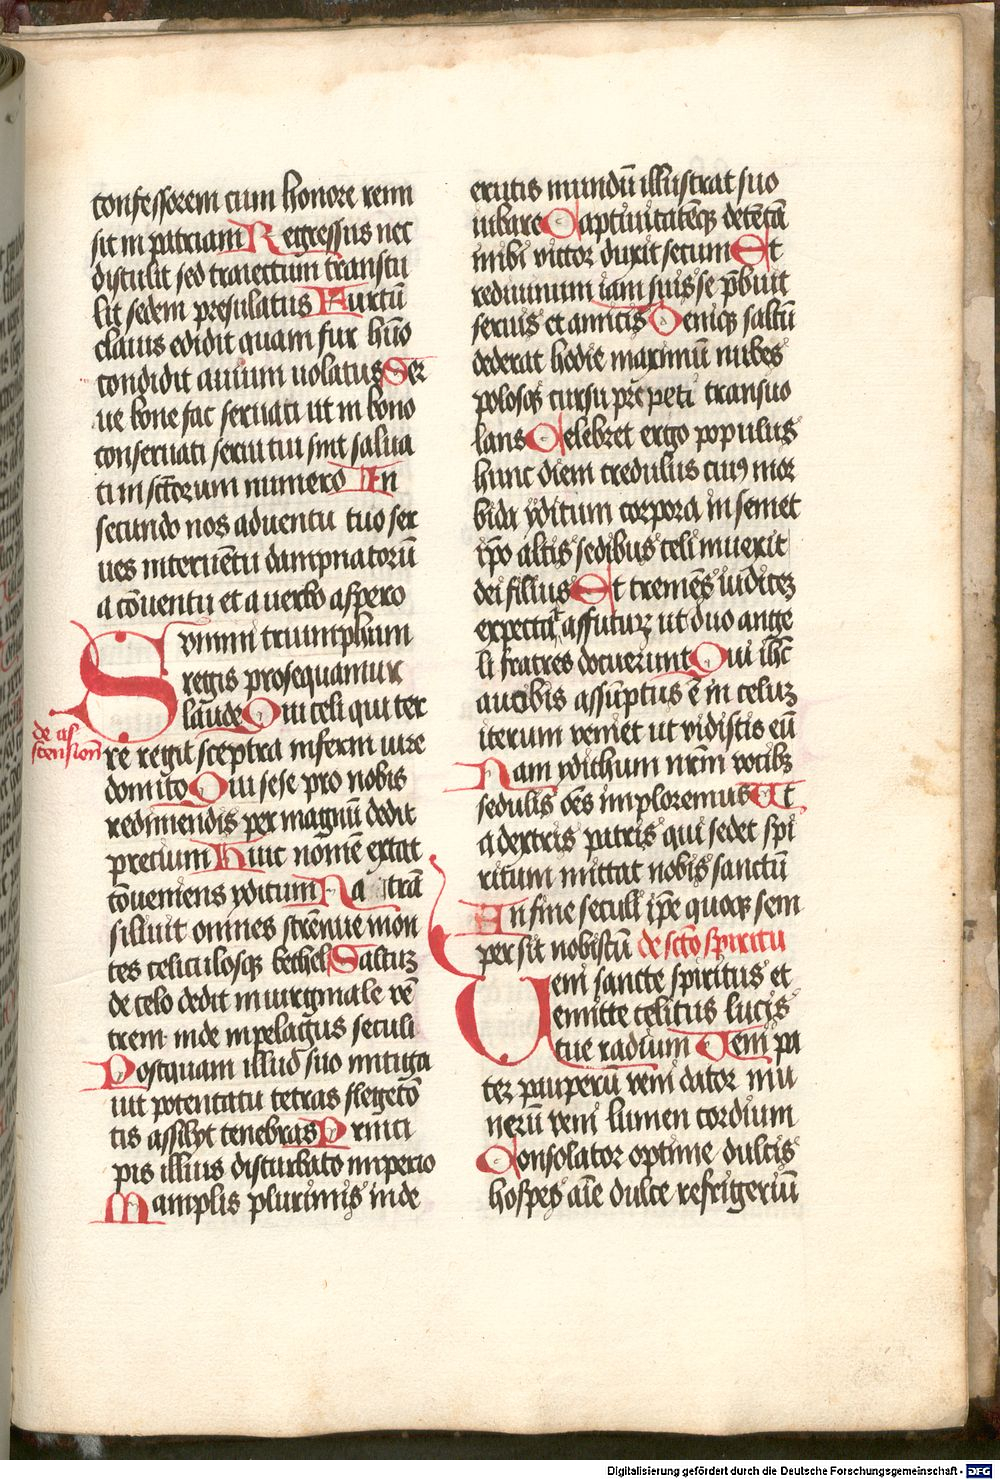 confessorem cum honore reuni
sit in patriam Regressus nec
distulit sed traiectum transtu
lit sedem presulatus Furtū
clauis edidit quam fur hūo
condidit auium uolatus Ser
ue bone fac seruati ut in bono
conseruati seruitui sint salua
ti in sctōrum numero In
secundo nos aduentu tuo ser
ues interuētu dampnatorū
a cōuentu et a uerbo aspero
Summi triumphum
regis prosequamur
laude Qui celi qui ter
de as
cension
re regit sceptra inferni iure
domito Qui sese pro nobis
redimendis per magnū dedit
precium Huic nomē extat
cōueniens yditum Na trā
siliuit omnes strēnue mon
tes celiculosqȝ bethel Saltuȝ
de celo dedit in uirginale vē
trem inde in pelagus seculi
Postquam illud suo mitiga
uit potentatu tetras flegetō
tis assilyt tenebras Princi
pis illius disturbato imperio
Maniplis plurimis inde
erutis mundū illustrat suo
iubare Captiuitatēqȝ detētā
inibi victor duxit secum Et
rediuiuum iam suis se p̄buit
seruis et amicis Deniqȝ saltū
dederat hodie maximū nubes
polosqȝ cursu prepeti transuo
lans Celebret ergo populus
hunc diem credulus cuiꝰ mor
bida yditum corpora in semet
ip̄o altis sedibus celi inuexit
dei filius Et tremēs iudiceȝ
expecta affuturȝ ut duo ange
li fratres docuerunt Qui ihc̄
a uobis assūptus ē in celuȝ
iterum veniet ut vidistis eū
Nam ydithum nr̄m vocibȝ
sedulis oēs imploremus Ut
a dextris patris qui sedet spi
ritum mittat nobis sanctū
In fine seculi ip̄e quoqȝ sem
per sit nobiscū de sctō spiritu
Ueni sancte spiritus et
emitte celitus lucis
tue radium Veni pa
ter pauperū veni dator mu
nerū veni lumen cordium
Consolator optime dulcis
hospes aīe dulce refrigeriū
Digitalisierung gefördert durch die Deutsche Forschungsgemeinschaft - DFG